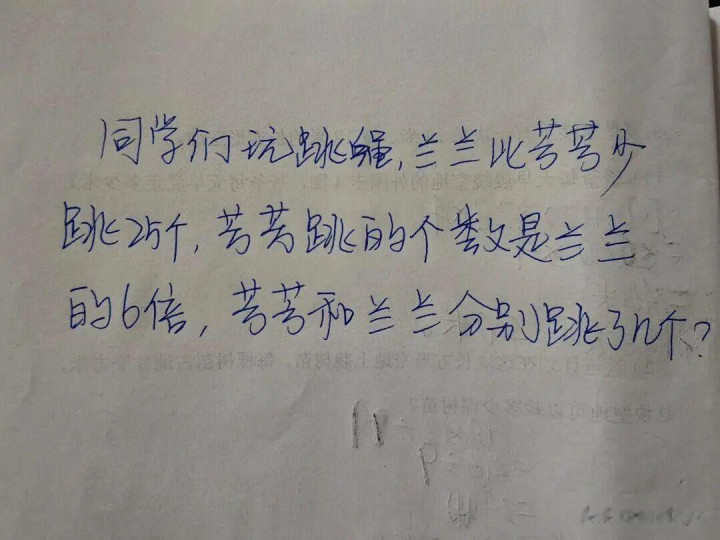 同学们玩跳绳,兰兰比芳芳少
跳25个,芳芳跳的个数是兰兰
的6倍,芳芳和兰兰分别跳了几个?